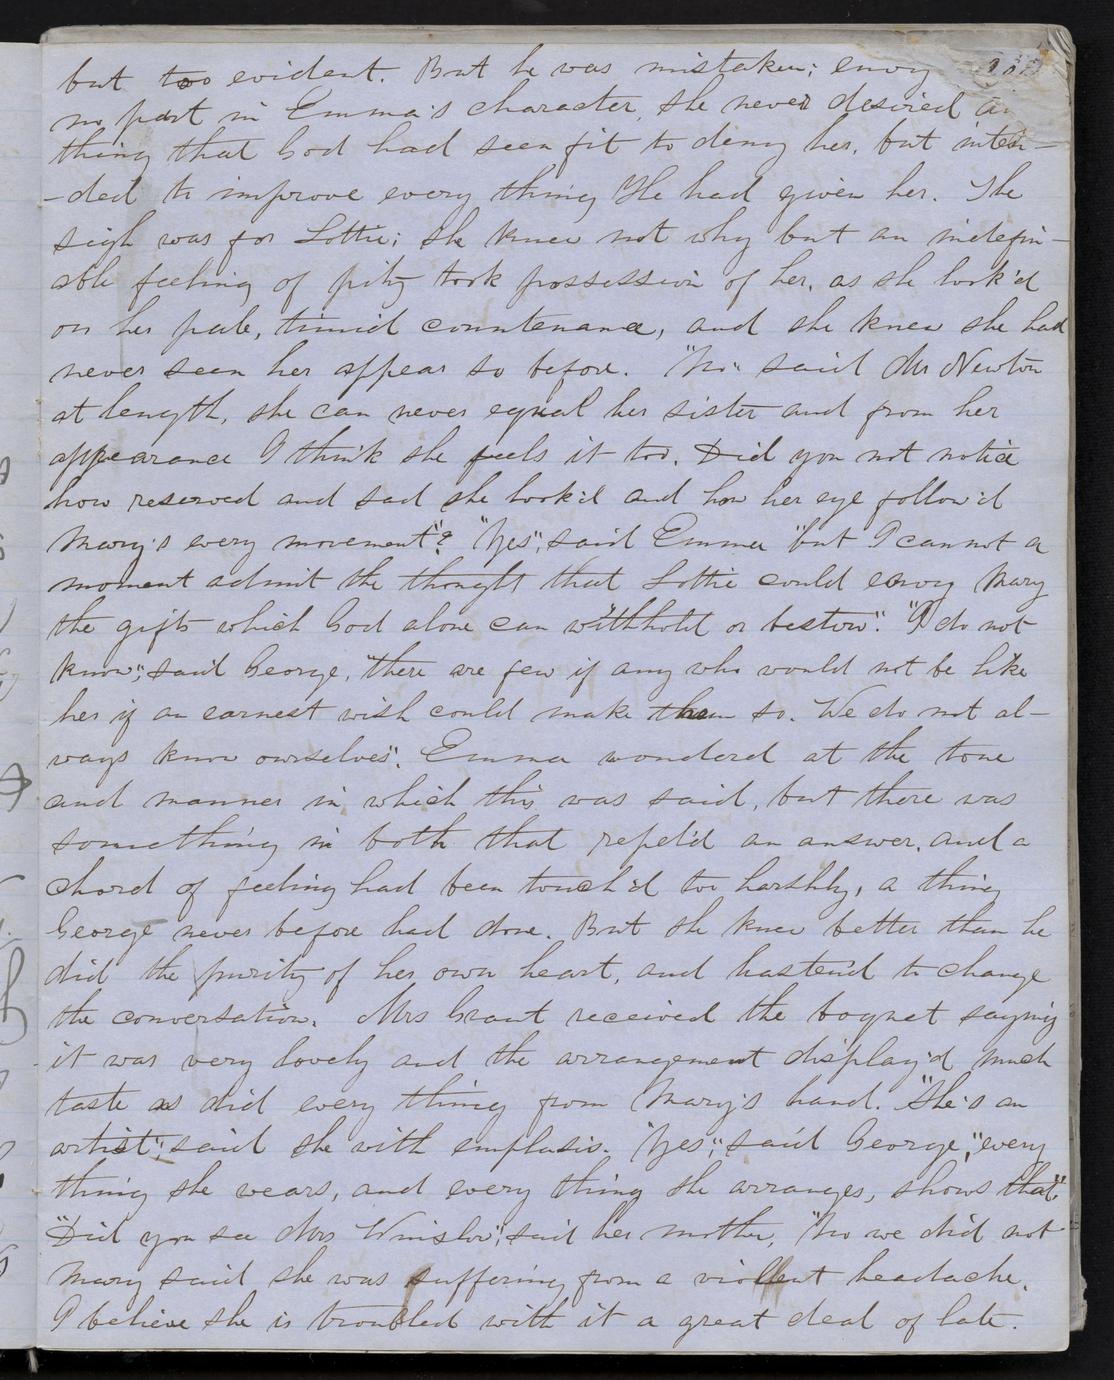 but too evident. But he was mistaken; envy
no part in Emma's character, she never desired an
thing that God had seen fit to deny her, but inten-
-ded to improve every thing He had given her. The
sigh was for Lottie; she knew not why but an indefin-
able feeling of pity took possession of her, as she look'd
on her pale, timid countenance, and she knew she had
never seen her appear so before. "No" said Mr Newton
at length, she can never equal her sister and from her
appearance I think she feels it too. Did you not notice
how reserved and sad she look'd and how her eye follow'd
Mary's every movement"? "Yes", said Emma "but I cannot a
moment admit the thought that Lottie could envy Mary
the gifts which God alone can withhold or bestow". "I do not
know", said George, "there are few if any who would not be like
her if an earnest wish could make them so. We do not al-
ways know ourselves". Emma wonderd at the tone
and manner in which this was said, but there was
something in both that repel'd an answer, and a
chord of feeling had been touch'd too harshly, a thing
George never before had done. But she knew better than he
did the purity of her own heart, and hasten'd to change
the conversation. Mrs Grant received the boquet saying
it was very lovely and the arrangement display'd much
taste as did every thing from Mary's hand. "She's an
artist", said she with emphasis. "Yes", said George, "every
thing she wears, and every thing she arranges, shows that."
"Did you see Mrs Winslow", said her mother, "No we did not
Mary said she was suffering from a violent headache.
I believe she is troubled with it a great deal of late.